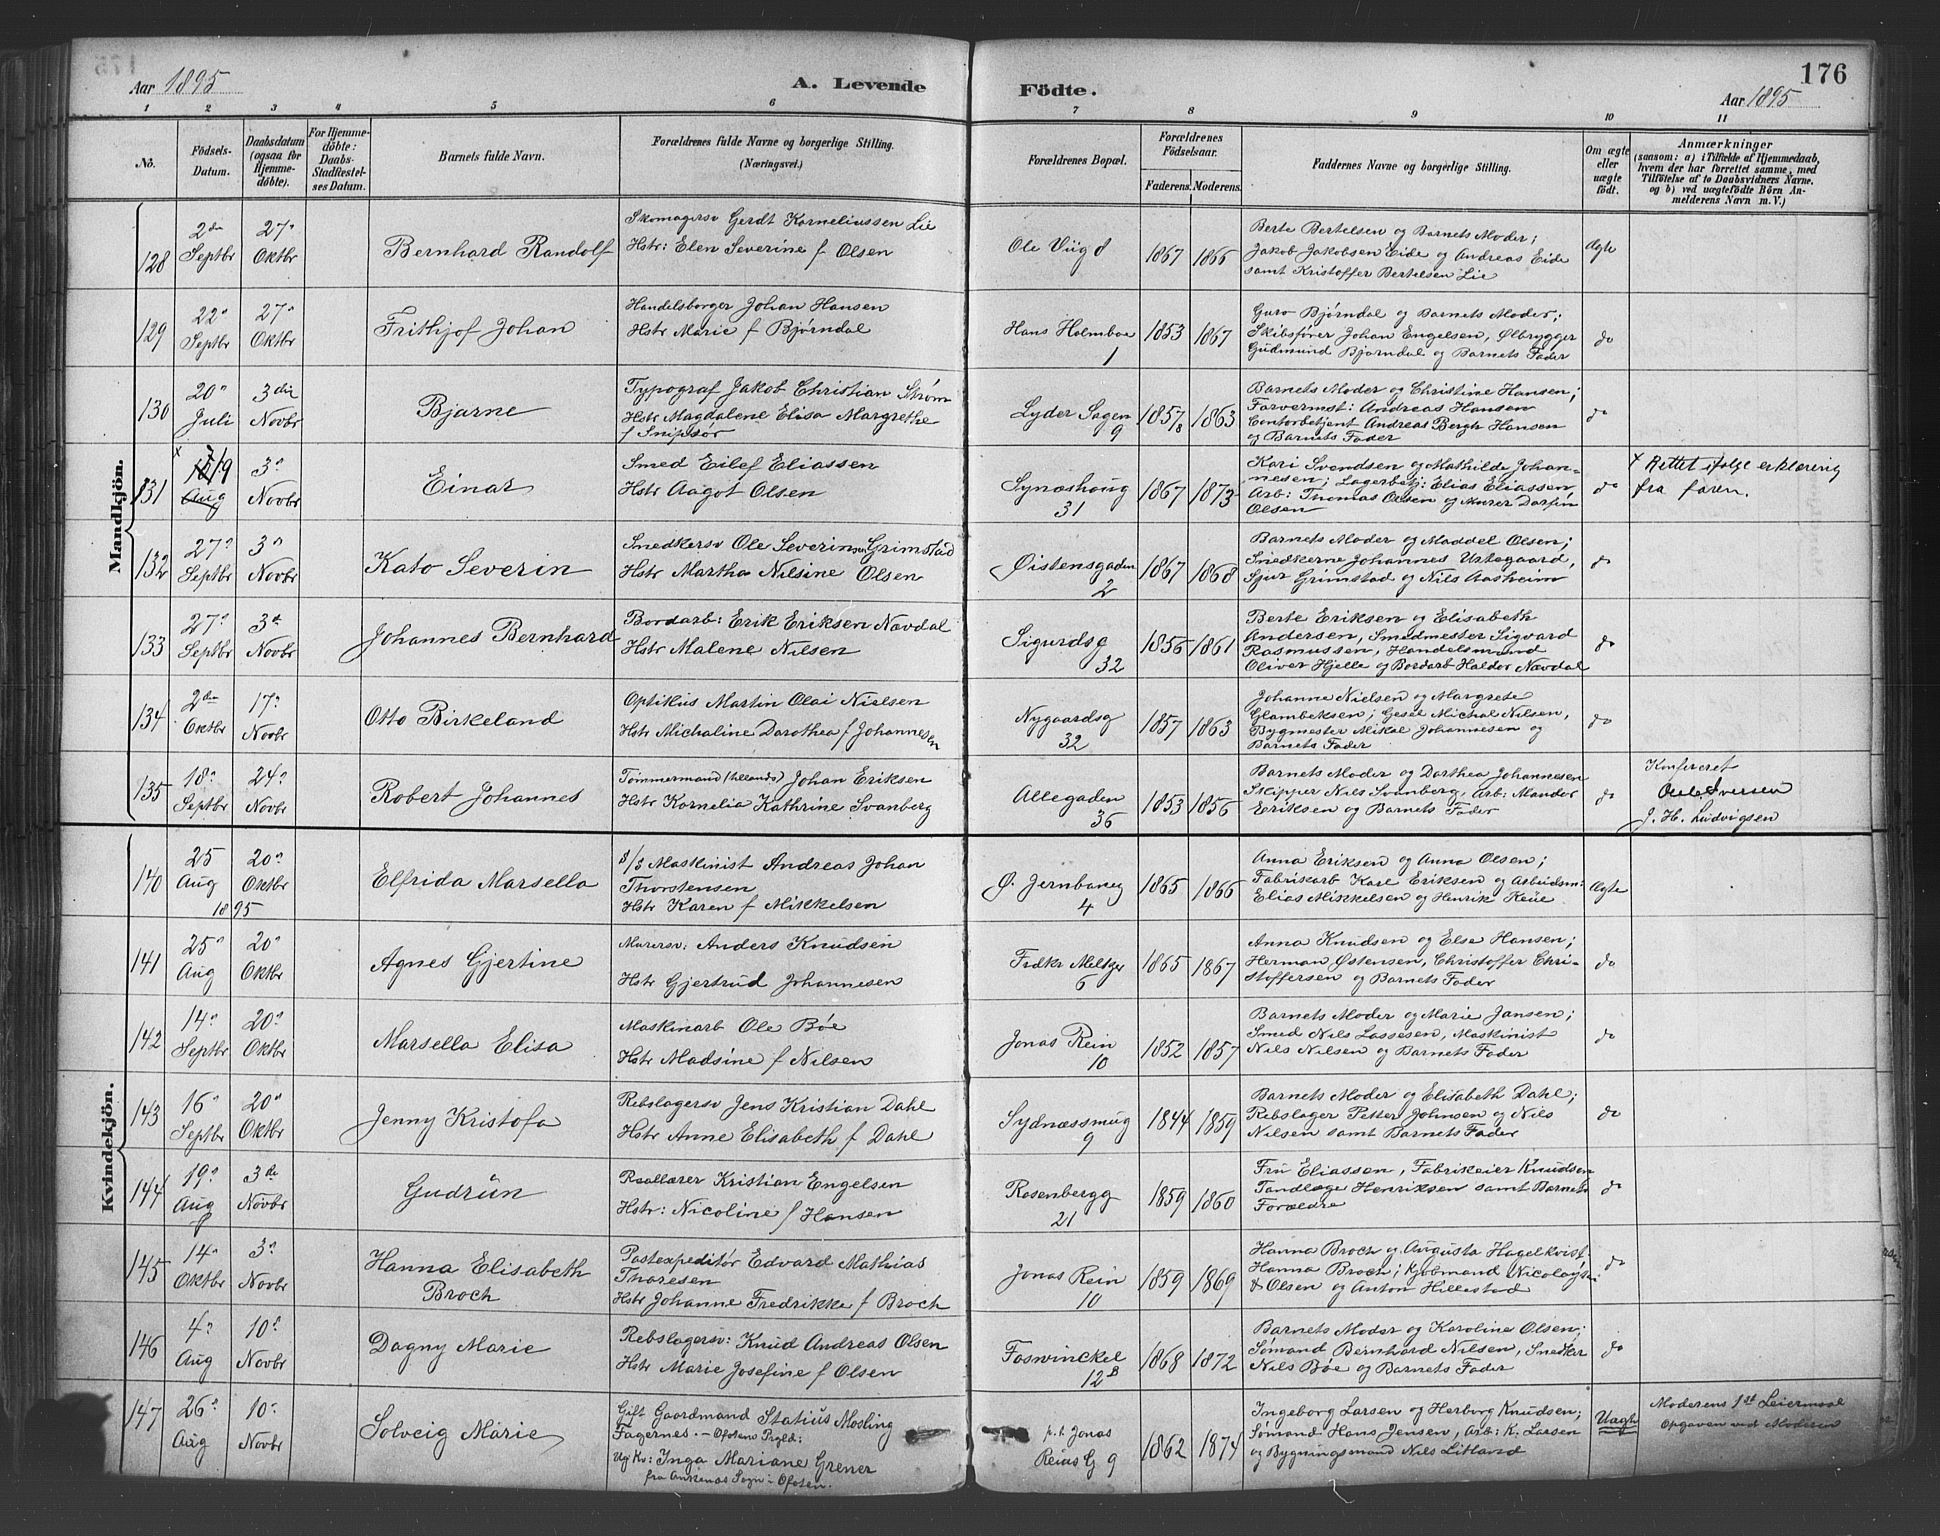 176
Aar 1895
A. Levende Födte.
Aar 1895
1 2 3 4 5 6 7 8 9 10 11
No.
Födsels-Datum.
Daabsdatum (ogsaa for Hjemme-döbte).
For Hjemme-döbte: Daabs-Stadfæstel-ses Datum.
Barnets fulde Navn.
Forældrenes fulde Navne og borgerlige Stilling. (Næringsvei.)
Forældrenes Bopæl.
Forældrenes Födselsaar.
Faderens. Moderens.
Faddernes Navne og borgerlige Stilling.
Om ægte eller uægte födt.
Anmærkninger
(saasom: a) i Tilfælde af Hjemmedaab,
hvem der har forrettet samme, med
Tilföielse af to Daabsvidners Navne,
og b) ved uægtefödte Börn An-
melderens Navn m. V.)
Mandkjön.
128
2den Septbr
27 Oktbr
Bernhard Randolf
Skomagersv Gerdt Korneliussen Lie
Hstr: Elen Severine f Olsen
Ole Viig d
1867 1866
Berte Bertelsen og Barnets Moder;
Jakob Jakobsen Eide og Andreas Eide
samt Kristoffer Bertelsen Lie
Ægte
129
22 Septbr
27 Oktbr
Frithjof Johan
Handelsborger Johan Hansen
Hstr Marie f Bjørndal
Hans Holmboe
1
1853 1867
Guro Bjørndal og Barnets Moder;
Skibsfører Johan Engelsen, Ølbrygger
Gudmund Bjørndal og Barnets Fader
do
130
20 Juli
3die Novbr
Bjarne
Typograf Jakob Christian Strøm
Hstr Magdalene Elisa Margrethe
f Snipsør
Lyder Sagen
9
1857/8 1863
Barnets Moder og Christine Hansen;
Farvermst: Andreas Hansen
Contorbetjent Andreas Bergh Hansen
og Barnets Fader
do
131
Aug
3 Novbr
Einar
Smed Eilef Eliassen
Hstr Aagot Olsen
Synæshoug
31
1867 1873
Kari Svendsen og Mathilde Johan-
nesen; Lagerbetj: Elias Eliassen
Arb: Thomas Olsen og Murer Dorfin
Olsen
do
+ Rettet ifølge erklæring
fra faren.
132
27 Septbr
3 Novbr
Kato Severin
Snedkersv Ole Severinsen Grimstad
Hstr Martha Nilsine Olsen
Øistensgaden
2
1867 1868
Barnets Moder og Maddel Olsen;
Snedkerne Johannes Ustegaard,
Sjur Grimstad og Nils Aasheim
do
133
27 Septbr
3die Novbr
Johannes Bernhard
Bordarb: Erik Eriksen Nævdal
Hstr Malene Nilsen
Sigurdsg
32
1856 1861
Berte Eriksen og Elisabeth
Andersen, Smedmester Sigvard
Rasmussen, Handelsmand
Oliver Hjelle og Bordarb Haldor Nævdal
do
134
2den Oktbr
17 Novbr
Otto Birkeland
Optikus Martin Olai Nielsen
Hstr Michaline Dorothea f Johannesen
Nygaardsg
32
1857 1863
Johanne Nielsen og Margrete
Glambeksen; Gesel Michal Nilsen,
Bygmester Mikal Johannesen og
Barnets Fader
do
135
18 Septbr
24 Novbr
Robert Johannes
Tømmermand Johan Eriksen
Hstr Kornelia Kathrine Svanberg
Allegaden
36
1853 1856
Barnets Moder og Dorthea Johannesen
Skipper Nils Svanberg, Arb: Mandor
Eriksen og Barnets Fader
do
Konfereret
J. H. Ludvigsen
Kvindekjön.
140
25 Aug
1895
20 Oktbr
Elfrida Marsella
Maskinist Andreas Johan
Thorstensen
Hstr Karen f Mikkelsen
Ø. Jernbaneg
4
1865 1866
Anna Eriksen og Anna Olsen;
Fabrikarb Karl Eriksen og Arbeidsm:
Elias Mikkelsen og Henrik Keue
Ægte
141
25 Aug
20 Oktbr
Agnes Gjertine
Murersv: Anders Knudsen
Hstr Gjertrud Johannesen
Fredkr Meltzer
6
1865 1867
Anna Knudsen og Else Hansen;
Herman Østensen, Christoffer Chri-
stoffersen og Barnets Fader
do
142
14 Septbr
20 Oktbr
Marsella Elisa
Maskinarb Ole Bøe
Hstr Madsine f Nilsen
Jonas Rein
10
1852 1857
Barnets Moder og Marie Jansen;
Smed Nils Lassesen, Maskinist
Nils Nilsen og Barnets Fader
do
143
16 Septbr
20 Oktbr
Jenny Kristofa
Rebslagersv Jens Kristian Dahl
Hstr Anne Elisabeth f Dahl
Sydnæssmug
9
1844 1859
Barnets Moder og Elisabeth Dahl;
Rebslager Petter Johnsen og Nils
Nilsen samt Barnets Fader
do
144
19 Aug
3die Novbr
Gudrun
Reallærer Kristian Engelsen
Hstr: Nicoline f Hansen
Rosenbergg
21
1859 1860
Fru Eliassen, Fabrikeier Knudsen
Tandlæge Henriksen samt Barnets
Forældre
do
145
14 Oktbr
3 Novbr
Hanna Elisabeth
Broch
Postexpeditør Edvard Mathias
Thoresen
Hstr Johanne Fredrikke f Broch
Jonas Rein
10
1859 1869
Hanna Broch og Augusta Hagelkvist
Hanna Broch; Kjøbmand Nicolaysen
& Olsen og Anton Hillestad
do
146
4 Aug
10 Novbr
Dagny Marie
Rebslagersv: Knud Andreas Olsen
Hstr Marie Josefine f Olsen
Foswinckel
12B
1868 1872
Barnets Moder og Karoline Olsen;
Sømand Bernhard Nilsen, Snedker
Nils Bøe og Barnets Fader
do
147
26 Aug
10 Novbr
Solveig Marie
Gift Gaardmand Statius Mosling
Fagernes - Ofotens Prgld:
Ug Kv: Inga Mariane Grener
fra Ankenes Sogn - Ofoten.
p.t. Jonas
Reins G 9
1862 1874
Ingeborg Larsen og Herborg Knudsen;
Sømand Hans Jensen, Arb: K. Larsen
og Bygningsmand Nils Litland
Uægte
Moderens 1st Leiermaal
Opgaven ved Moderen